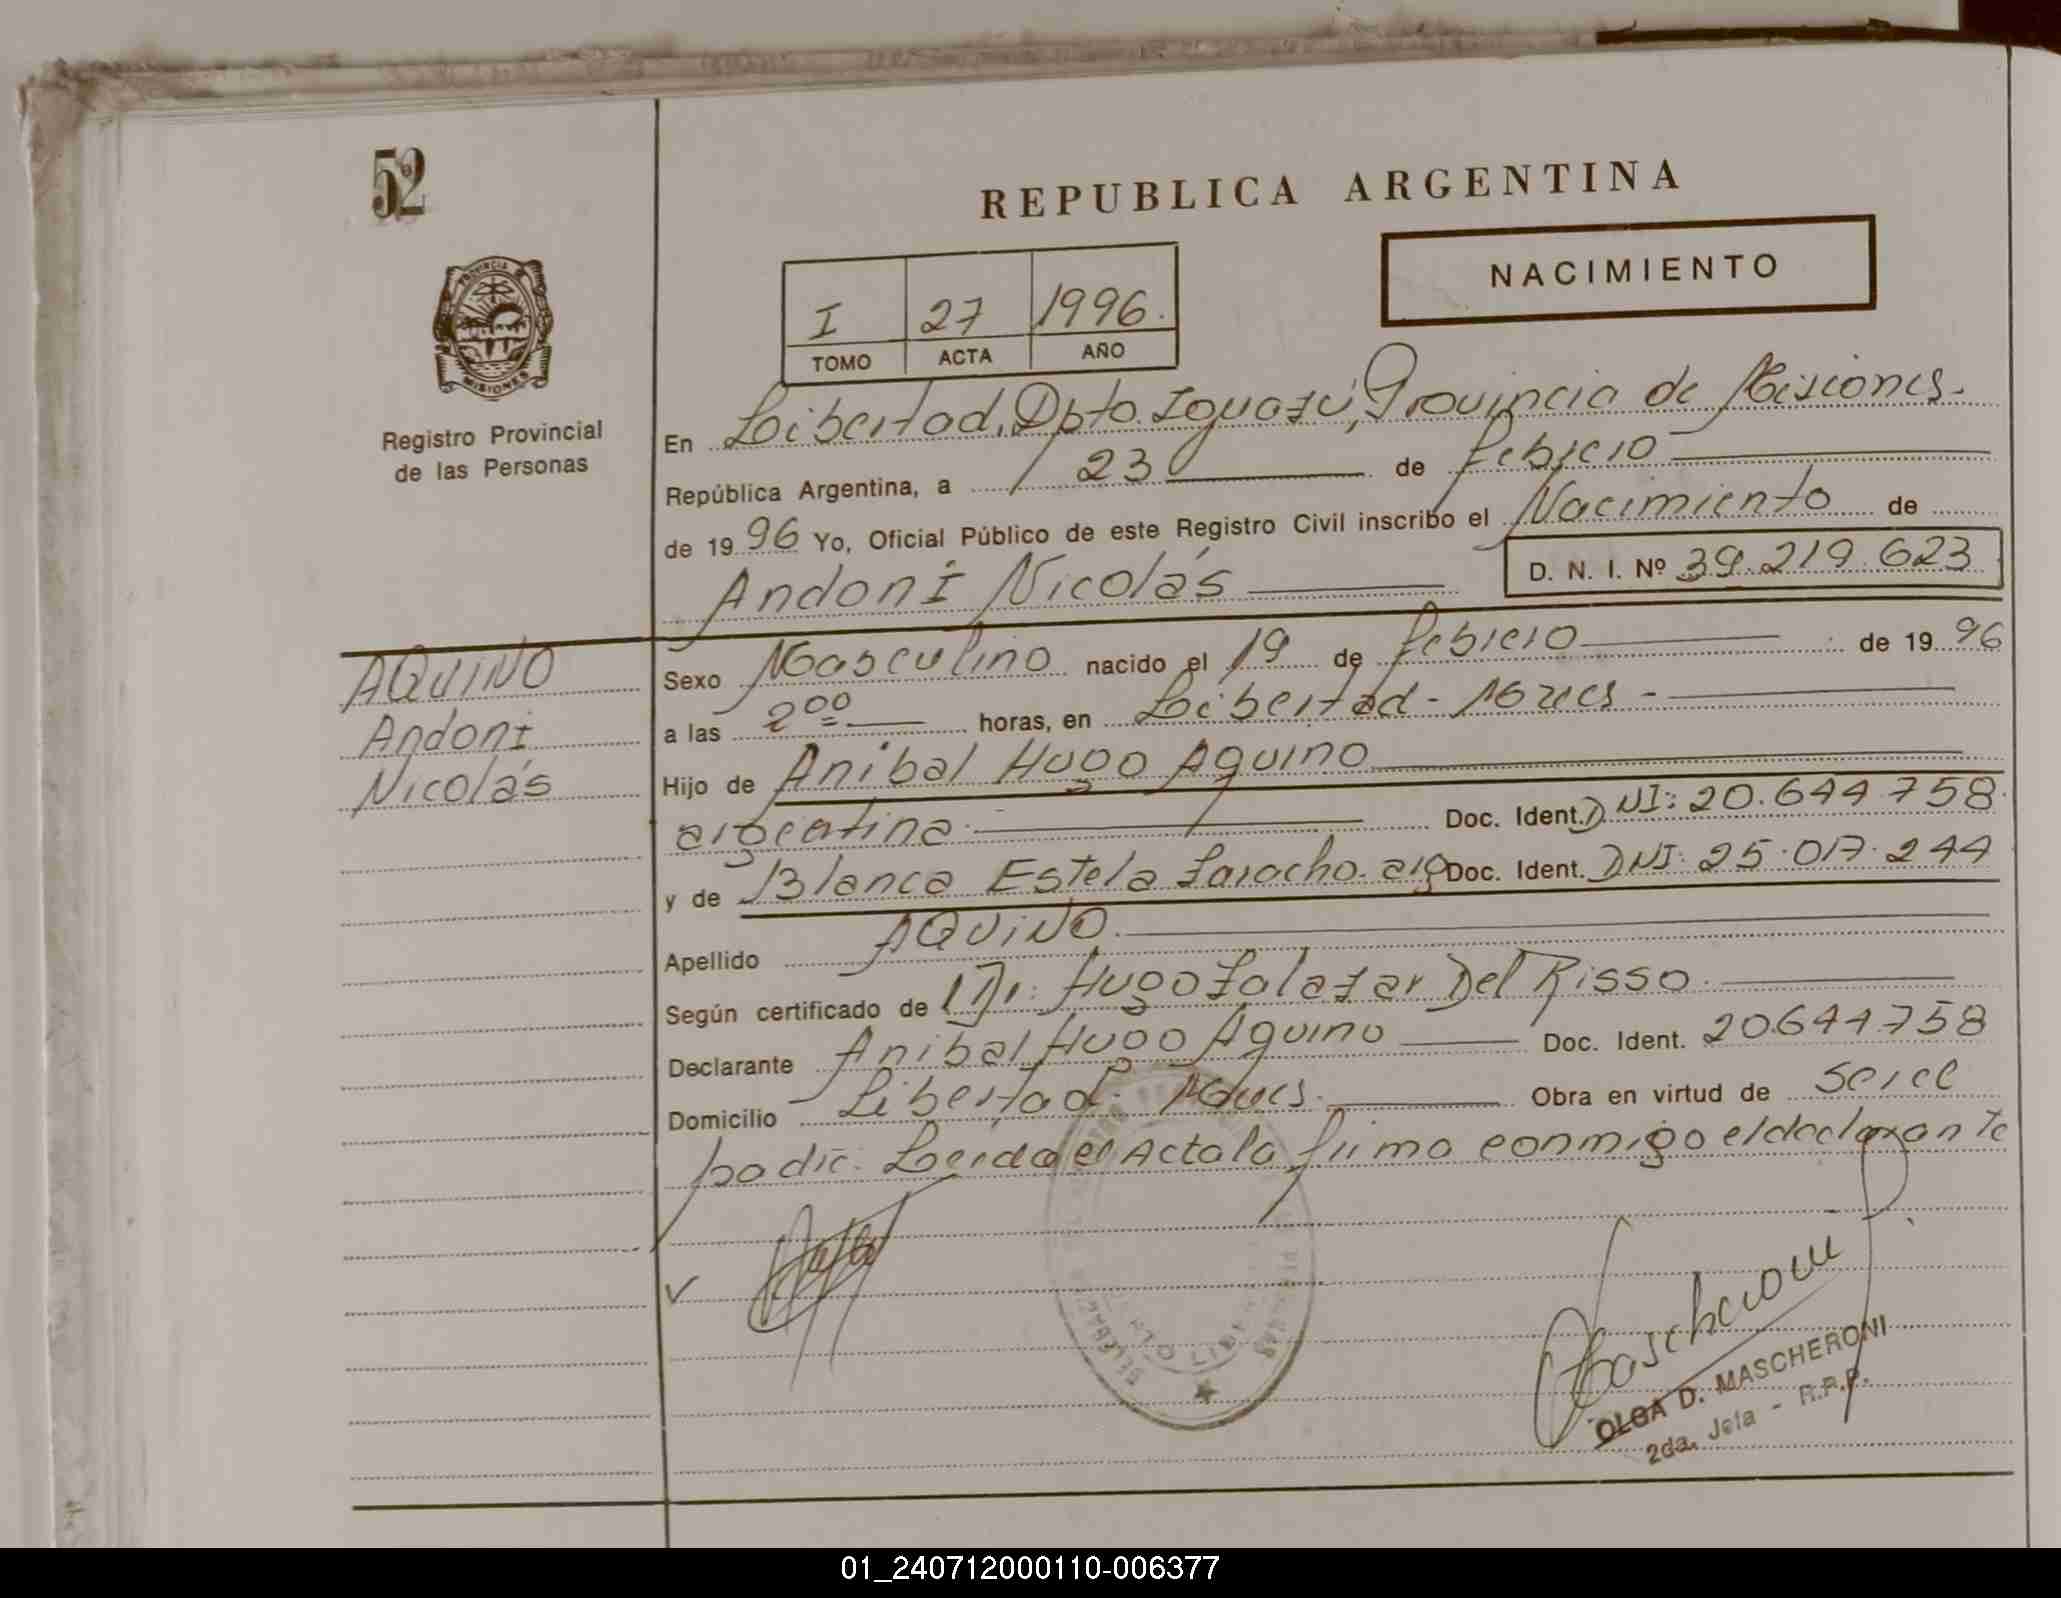 52
REPUBLICA ARGENTINA
NACIMIENTO
PROVINCIA DE
MISIONES
Registro Provincial
de las Personas
I 27 1996.
TOMO ACTA AÑO
En Libertad, Dpto. Iguazú, Provincia de Misiones.
República Argentina, a 23 de febrero
de 1996 Yo, Oficial Público de este Registro Civil inscribo el Nacimiento de
Andoni Nicolás D. N. I. Nº 39.219.623
AQUINO
Andoni
Nicolás
Sexo Masculino nacido el 19 de febrero de 1996
a las 2⁰⁰ horas, en Libertad - Mnes -
Hijo de Anibal Hugo Aquino
argentina Doc. Ident. DNI: 20.644.758
y de Blanca Estela Zaracho. arg Doc. Ident. DNI: 25.017.244
Apellido AQUINO.
Según certificado de Dr: Hugo Zalazar Del Risso.
Declarante Anibal Hugo Aquino Doc. Ident. 20644.758
Domicilio Libertad. Mnes. Obra en virtud de ser el
padre. Leida el Acta la firma conmigo el declarante
OLGA D. MASCHERONI
2da. Jefa - R.P.P.
01_240712000110-006377